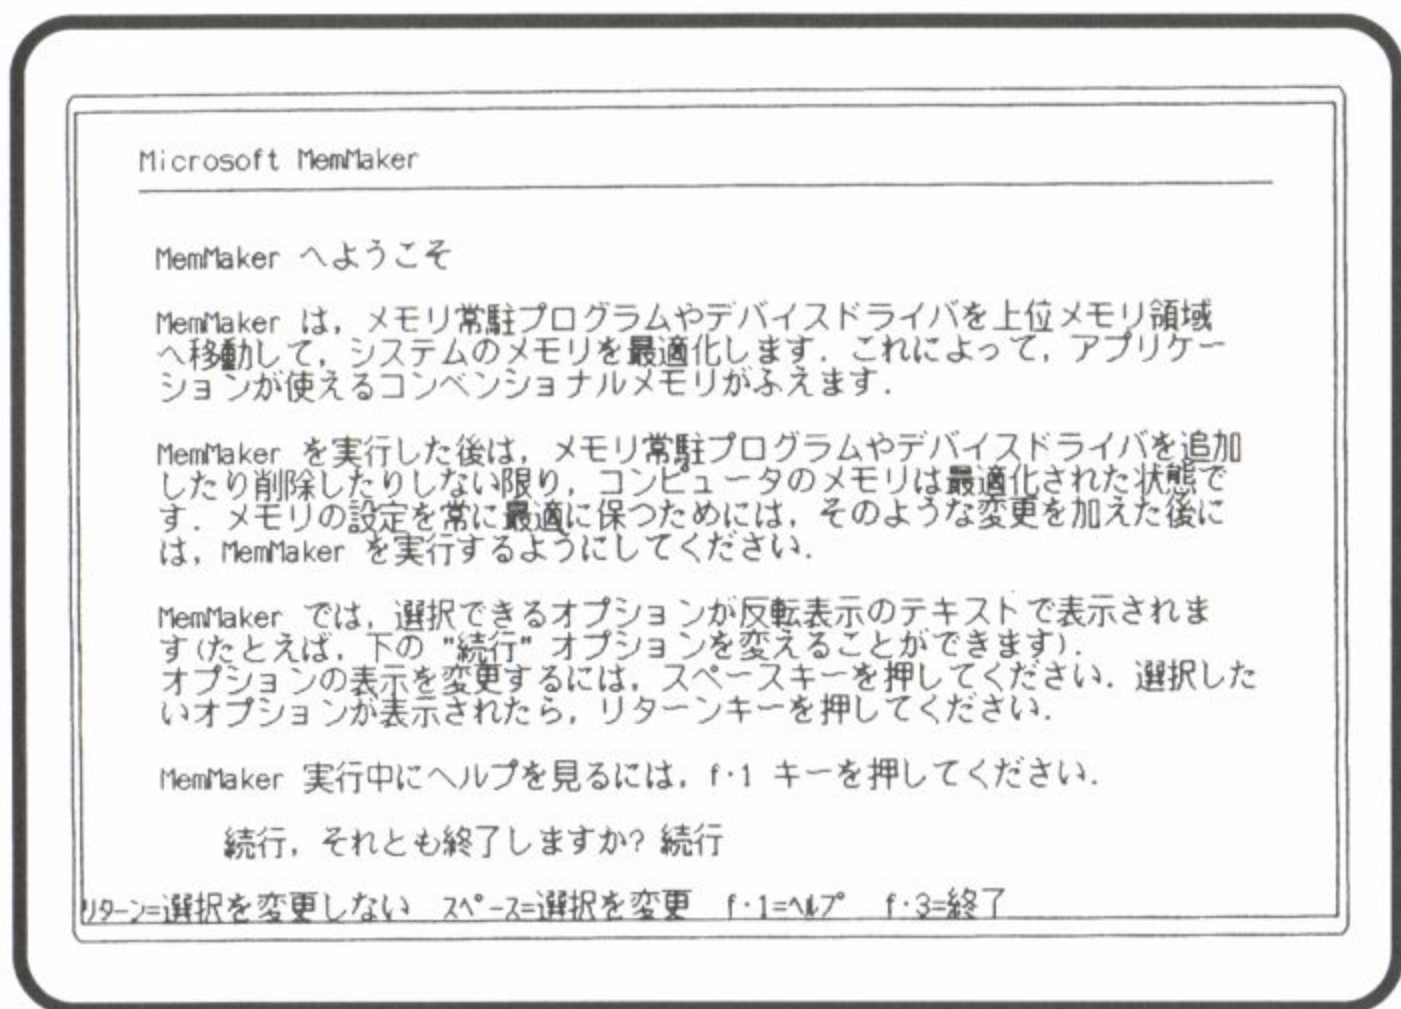 Microsoft MemMaker
MemMaker へようこそ
MemMaker は，メモリ常駐プログラムやデバイスドライバを上位メモリ領域
へ移動して，システムのメモリを最適化します．これによって，アプリケー
ションが使えるコンベンショナルメモリがふえます．
MemMaker を実行した後は，メモリ常駐プログラムやデバイスドライバを追加
したり削除したりしない限り，コンピュータのメモリは最適化された状態で
す．メモリの設定を常に最適に保つためには，そのような変更を加えた後に
は，MemMaker を実行するようにしてください．
MemMaker では，選択できるオプションが反転表示のテキストで表示されま
す(たとえば，下の "続行" オプションを変えることができます)．
オプションの表示を変更するには，スペースキーを押してください．選択した
いオプションが表示されたら，リターンキーを押してください．
MemMaker 実行中にヘルプを見るには，f･1 キーを押してください．
続行，それとも終了しますか? 続行
ﾘﾀｰﾝ=選択を変更しない ｽﾍﾟｰｽ=選択を変更 f･1=ﾍﾙﾌﾟ f･3=終了